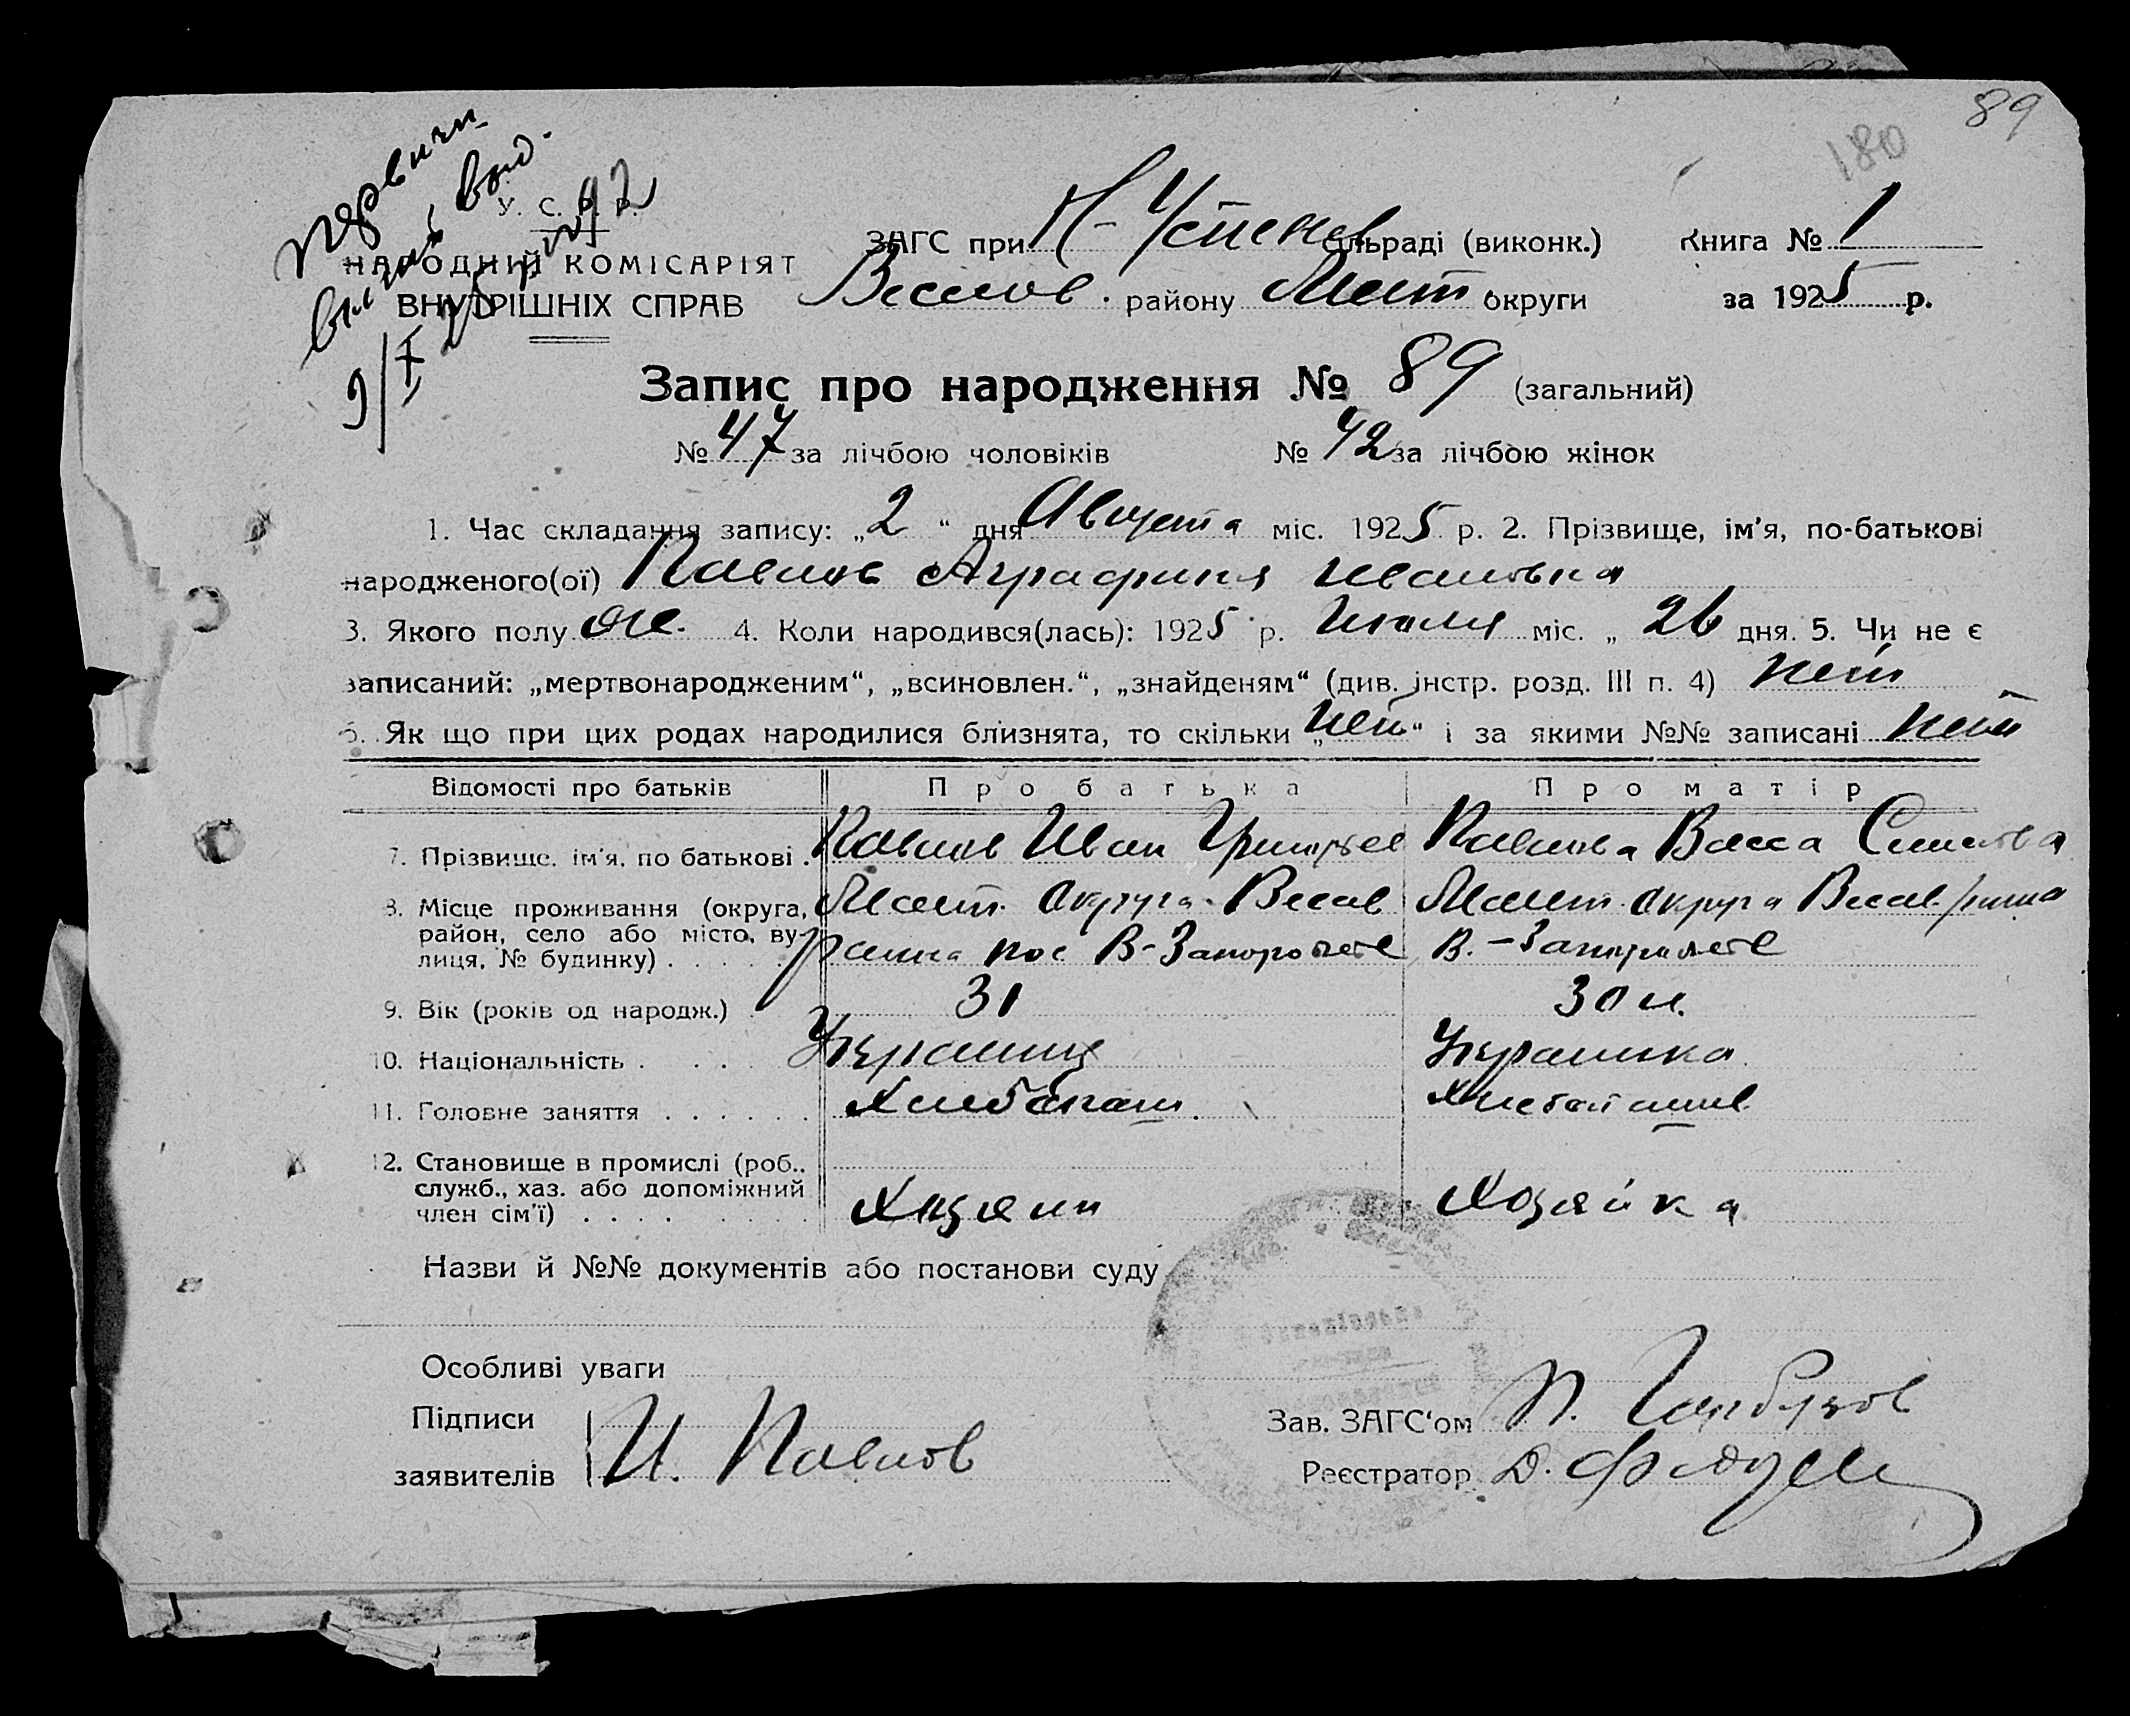 89
180
У. С. Р. Р.
НАРОДНІЙ КОМІСАРІЯТ
ВНУТРІШНІХ СПРАВ
ЗАГС при Н-Успенов сільраді (виконк.) Книга № 1
Веселов. району Мелит округи за 1925 р.
Запис про народження № 89 (загальний)
№ 47 за лічбою чоловіків № 42 за лічбою жінок
1. Час складання запису: „2“ дня Августа міс. 1925 р. 2. Прізвище, ім'я, по-батькові
народженого(ої) Павлов Аграфина Ивановна
3. Якого полу же. 4. Коли народився(лась): 1925 р. Июля міс. „ 26 дня. 5. Чи не є
записаний: „мертвонародженим“, „всиновлен.“, „знайденям“ (див. інстр. розд. III п. 4) нет
6. Як що при цих родах народилися близнята, то скільки „нет“ і за якими №№ записані нет
Відомості про батьків Про батька Про матір
7. Прізвище, ім'я, по батькові . Павлов Иван Григорьев Павлова Васса
8. Місце проживання (округа, Мелит. округа Весел Мелит. округа Весел. района
район, село або місто, ву- района пос В-Запорожье В.-Запорожье
лиця, № будинку) . . . . .
9. Вік (років од народж.) 31 30 л.
10. Національність . . . . Украинец Украинка
11. Головне заняття . . . . . . Хлебопаш. Хлебопашив.
12. Становище в промислі (роб.,
служб., хаз. або допоміжний Хозяин Хозяйка
член сім'ї) . . . . . . . .
Назви й №№ документів або постанови суду
Особливі уваги
Підписи
заявителів И. Павлов
Зав. ЗАГС'ом П.
Реєстратор Д.